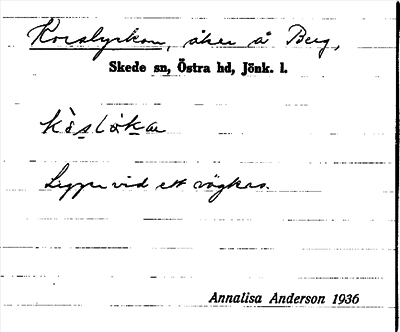 Korslyckan, åker å Berg,
Skede sn, Östra hd, Jönk. l.
Ligger vid ett vägkors.
Annalisa Anderson 1936